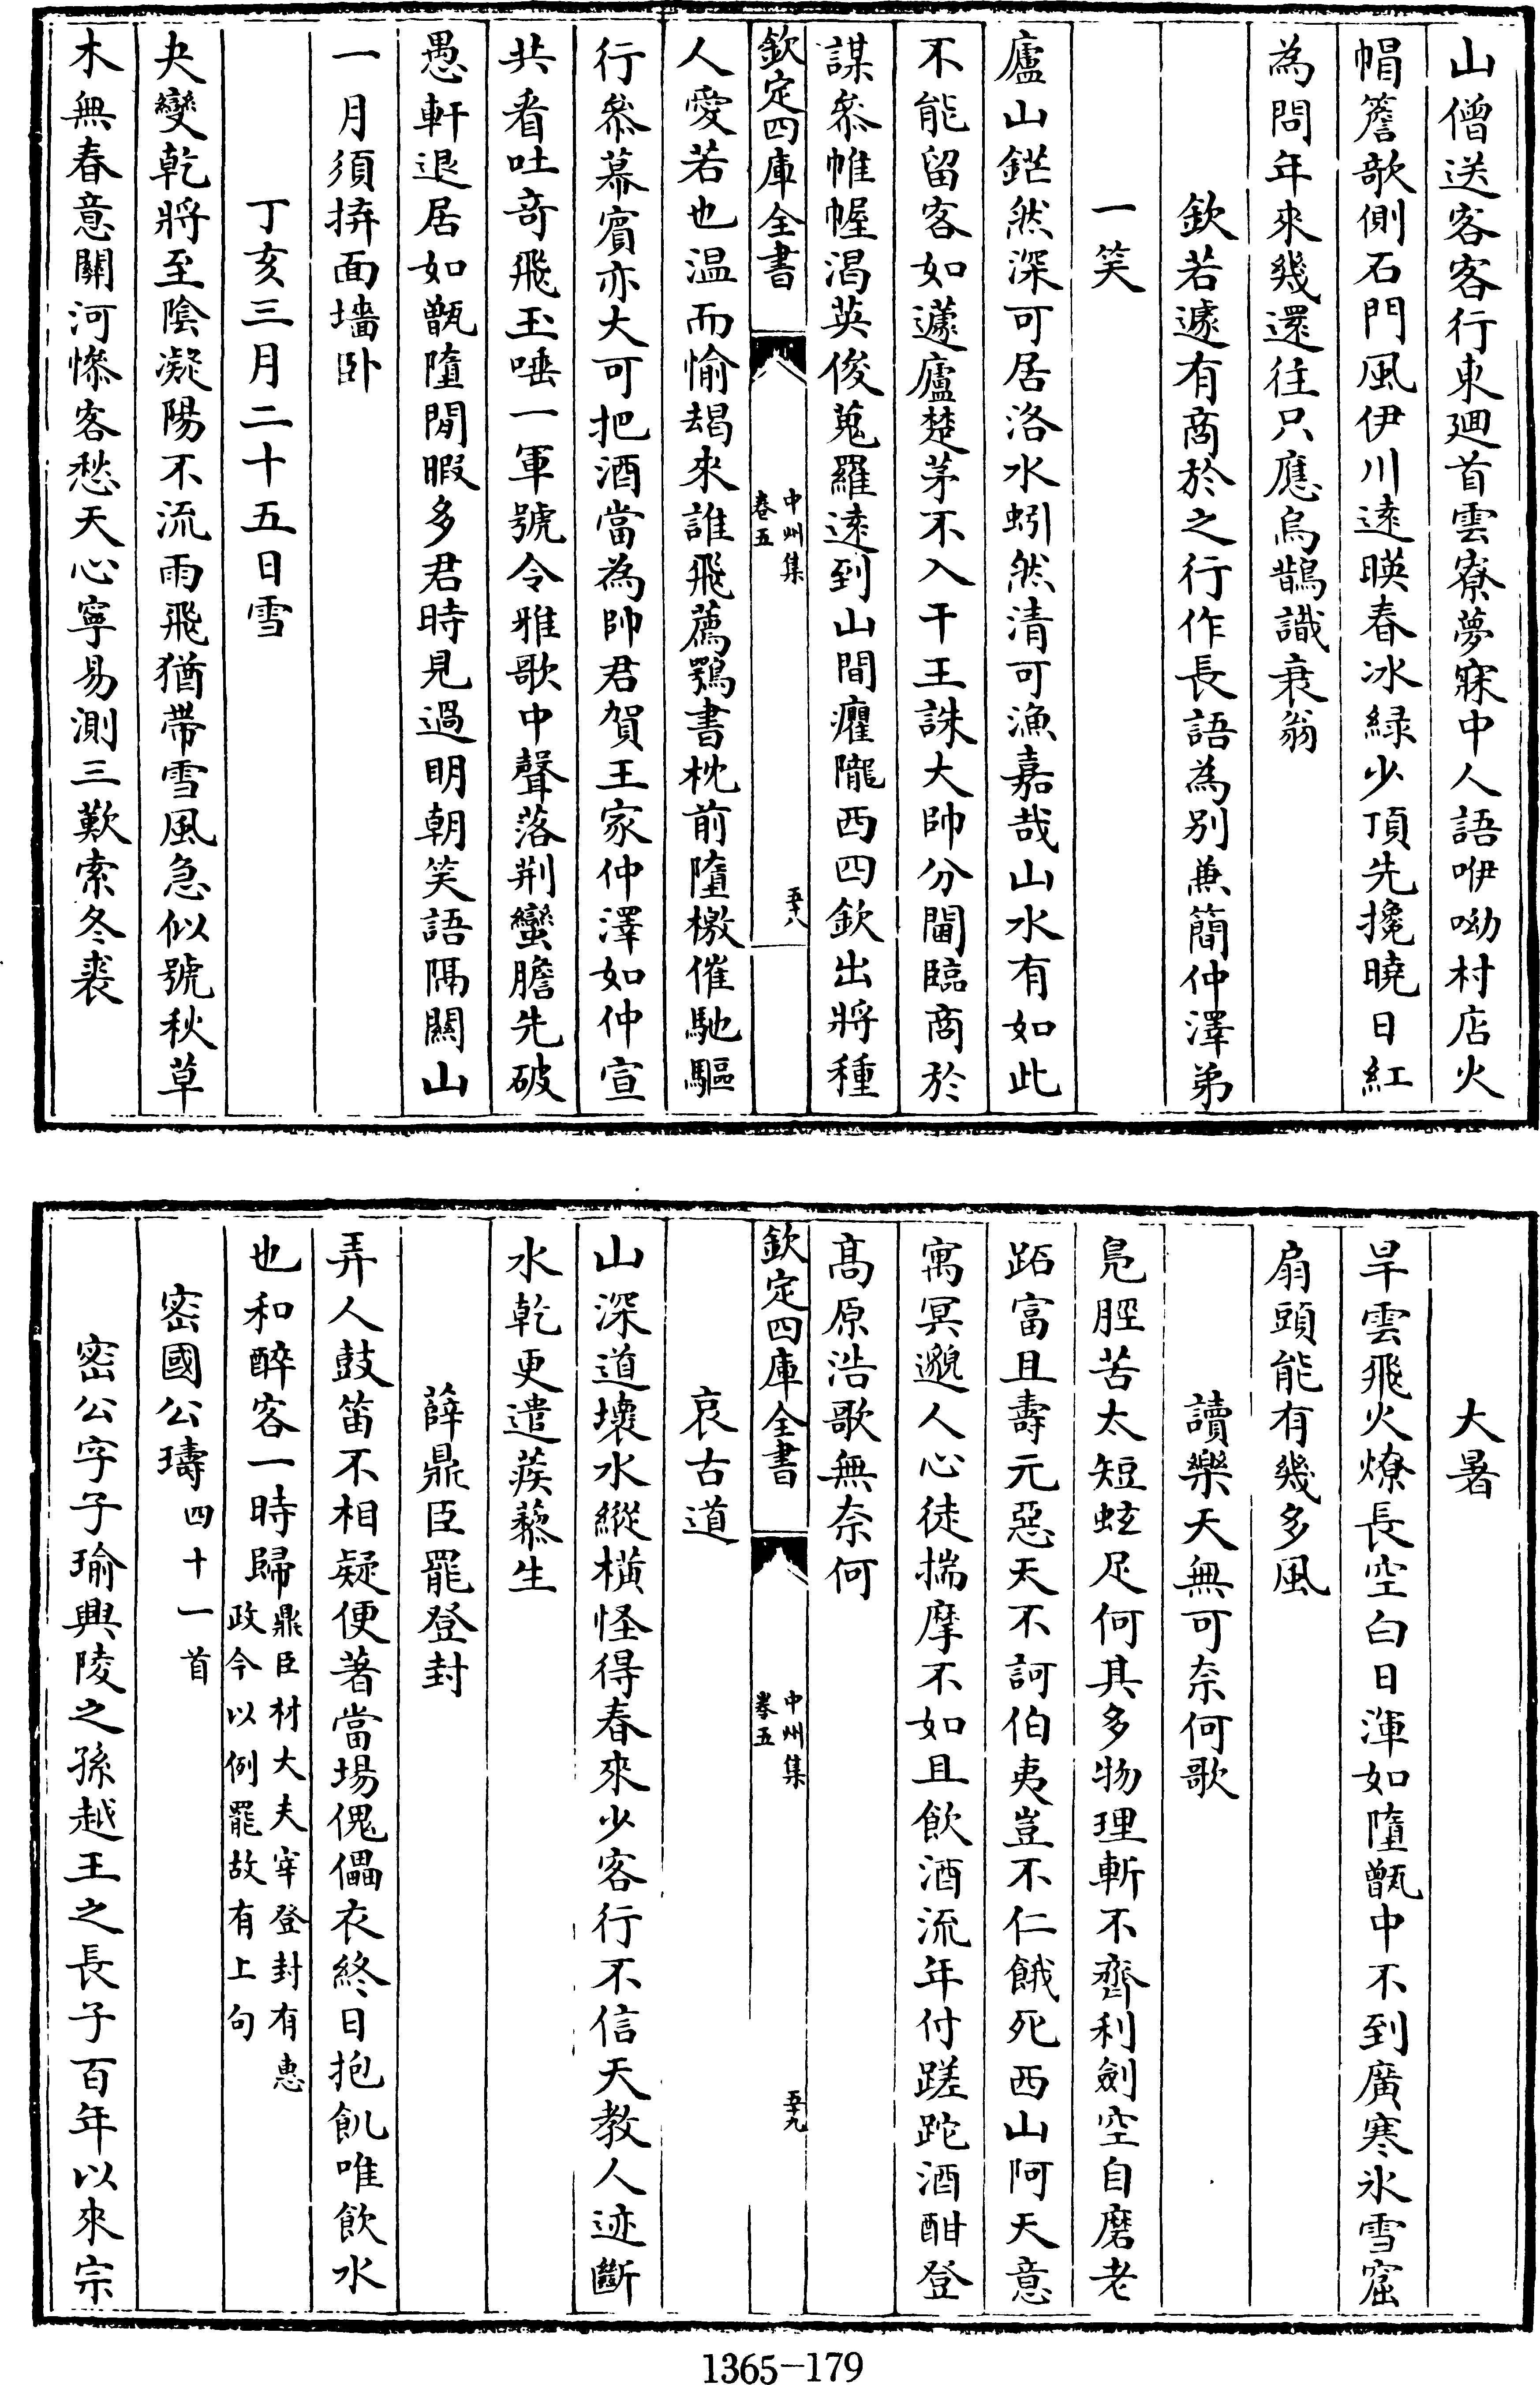 山僧送客客行東廻首雲寮夢寐中人語咿呦村店火
帽簷欹側石門風伊川逺暎春冰緑少頂先攙曉日紅
為問年來幾還往只應烏鵲識衰翁
欽若遽有商於之行作長語為别兼簡仲澤弟
一笑
廬山鋩然深可居洛水蚓然清可漁嘉哉山水有如此
不能留客如蘧廬楚茅不入干王誅大帥分閫臨商於
謀叅帷幄渴英俊蒐羅逺到山間癯隴西四欽出將種
欽定四庫全書
中州集
卷五
五十八
人愛若也温而愉朅來誰飛薦鶚書枕前墮檄催馳驅
行叅幕賓亦大可把酒當為帥君賀王家仲澤如仲宣
共看吐奇飛玉唾一軍號令雅歌中聲落荆蠻膽先破
愚軒退居如甑墮閒暇多君時見過明朝笑語隔關山
一月須拚面墻卧
丁亥三月二十五日雪
夬變乾將至隂凝陽不流雨飛猶帶雪風急似號秋草
木無春意關河慘客愁天心寧易測三歎索冬裘
大暑
旱雲飛火燎長空白日渾如墮甑中不到廣寒氷雪窟
扇頭能有幾多風
讀樂天無可奈何歌
鳧脛苦太短蚿足何其多物理斬不齊利劍空自磨老
跖富且壽元惡天不訶伯夷豈不仁餓死西山阿天意
寓冥邈人心徒揣摩不如且飲酒流年付蹉跎酒酣登
高原浩歌無奈何
欽定四庫全書
中州集
卷五
五十九
哀古道
山深道壞水縱横怪得春來少客行不信天教人迹斷
水乾更遣蒺藜生
薛鼎臣罷登封
弄人鼓笛不相疑便著當場傀儡衣終日抱飢唯飲水
也和醉客一時歸鼎臣材大夫宰登封有惠
政今以例罷故有上句
密國公璹四十一首
密公字子瑜興陵之孫越王之長子百年以來宗
1365-179